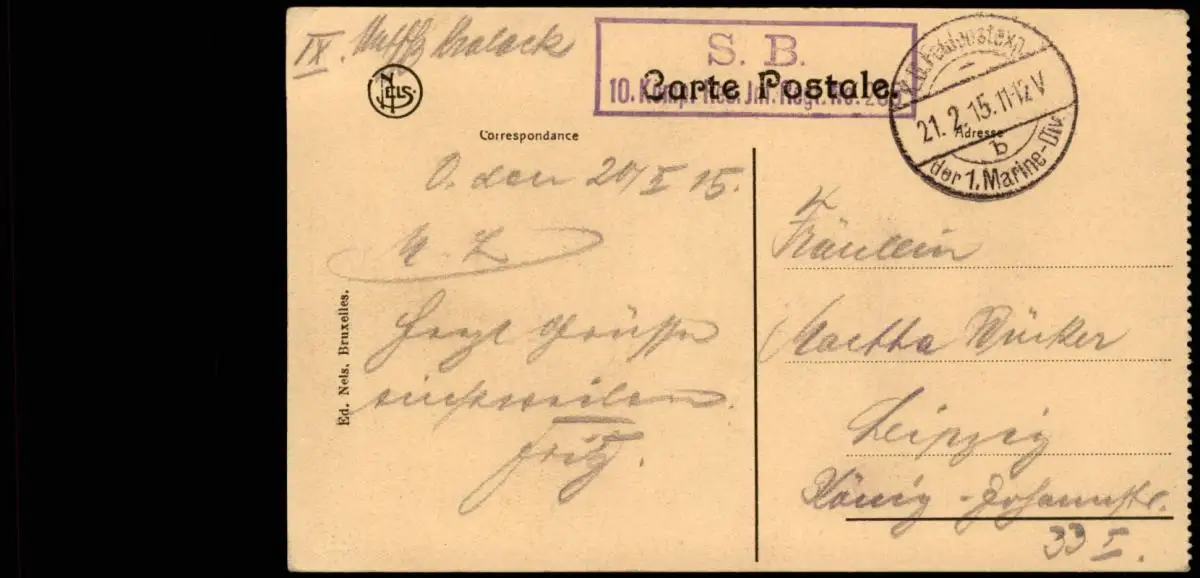 IX.
S. B.
10. Komp. Res. Inf. Regt. No.
Carte Postale.
K. D. Feldpostexp.
21. 2. 15. 11-12 V
b
der 1. Marine-Div.
NELS.
Correspondance
Adresse
O. den 20/II 15.
M. L.
Herzl Grüsse
einstweilen
Fritz.
Ed. Nels, Bruxelles.
Fräulein
Martha Dücker
Leipzig
König-Johannstr.
33 I.